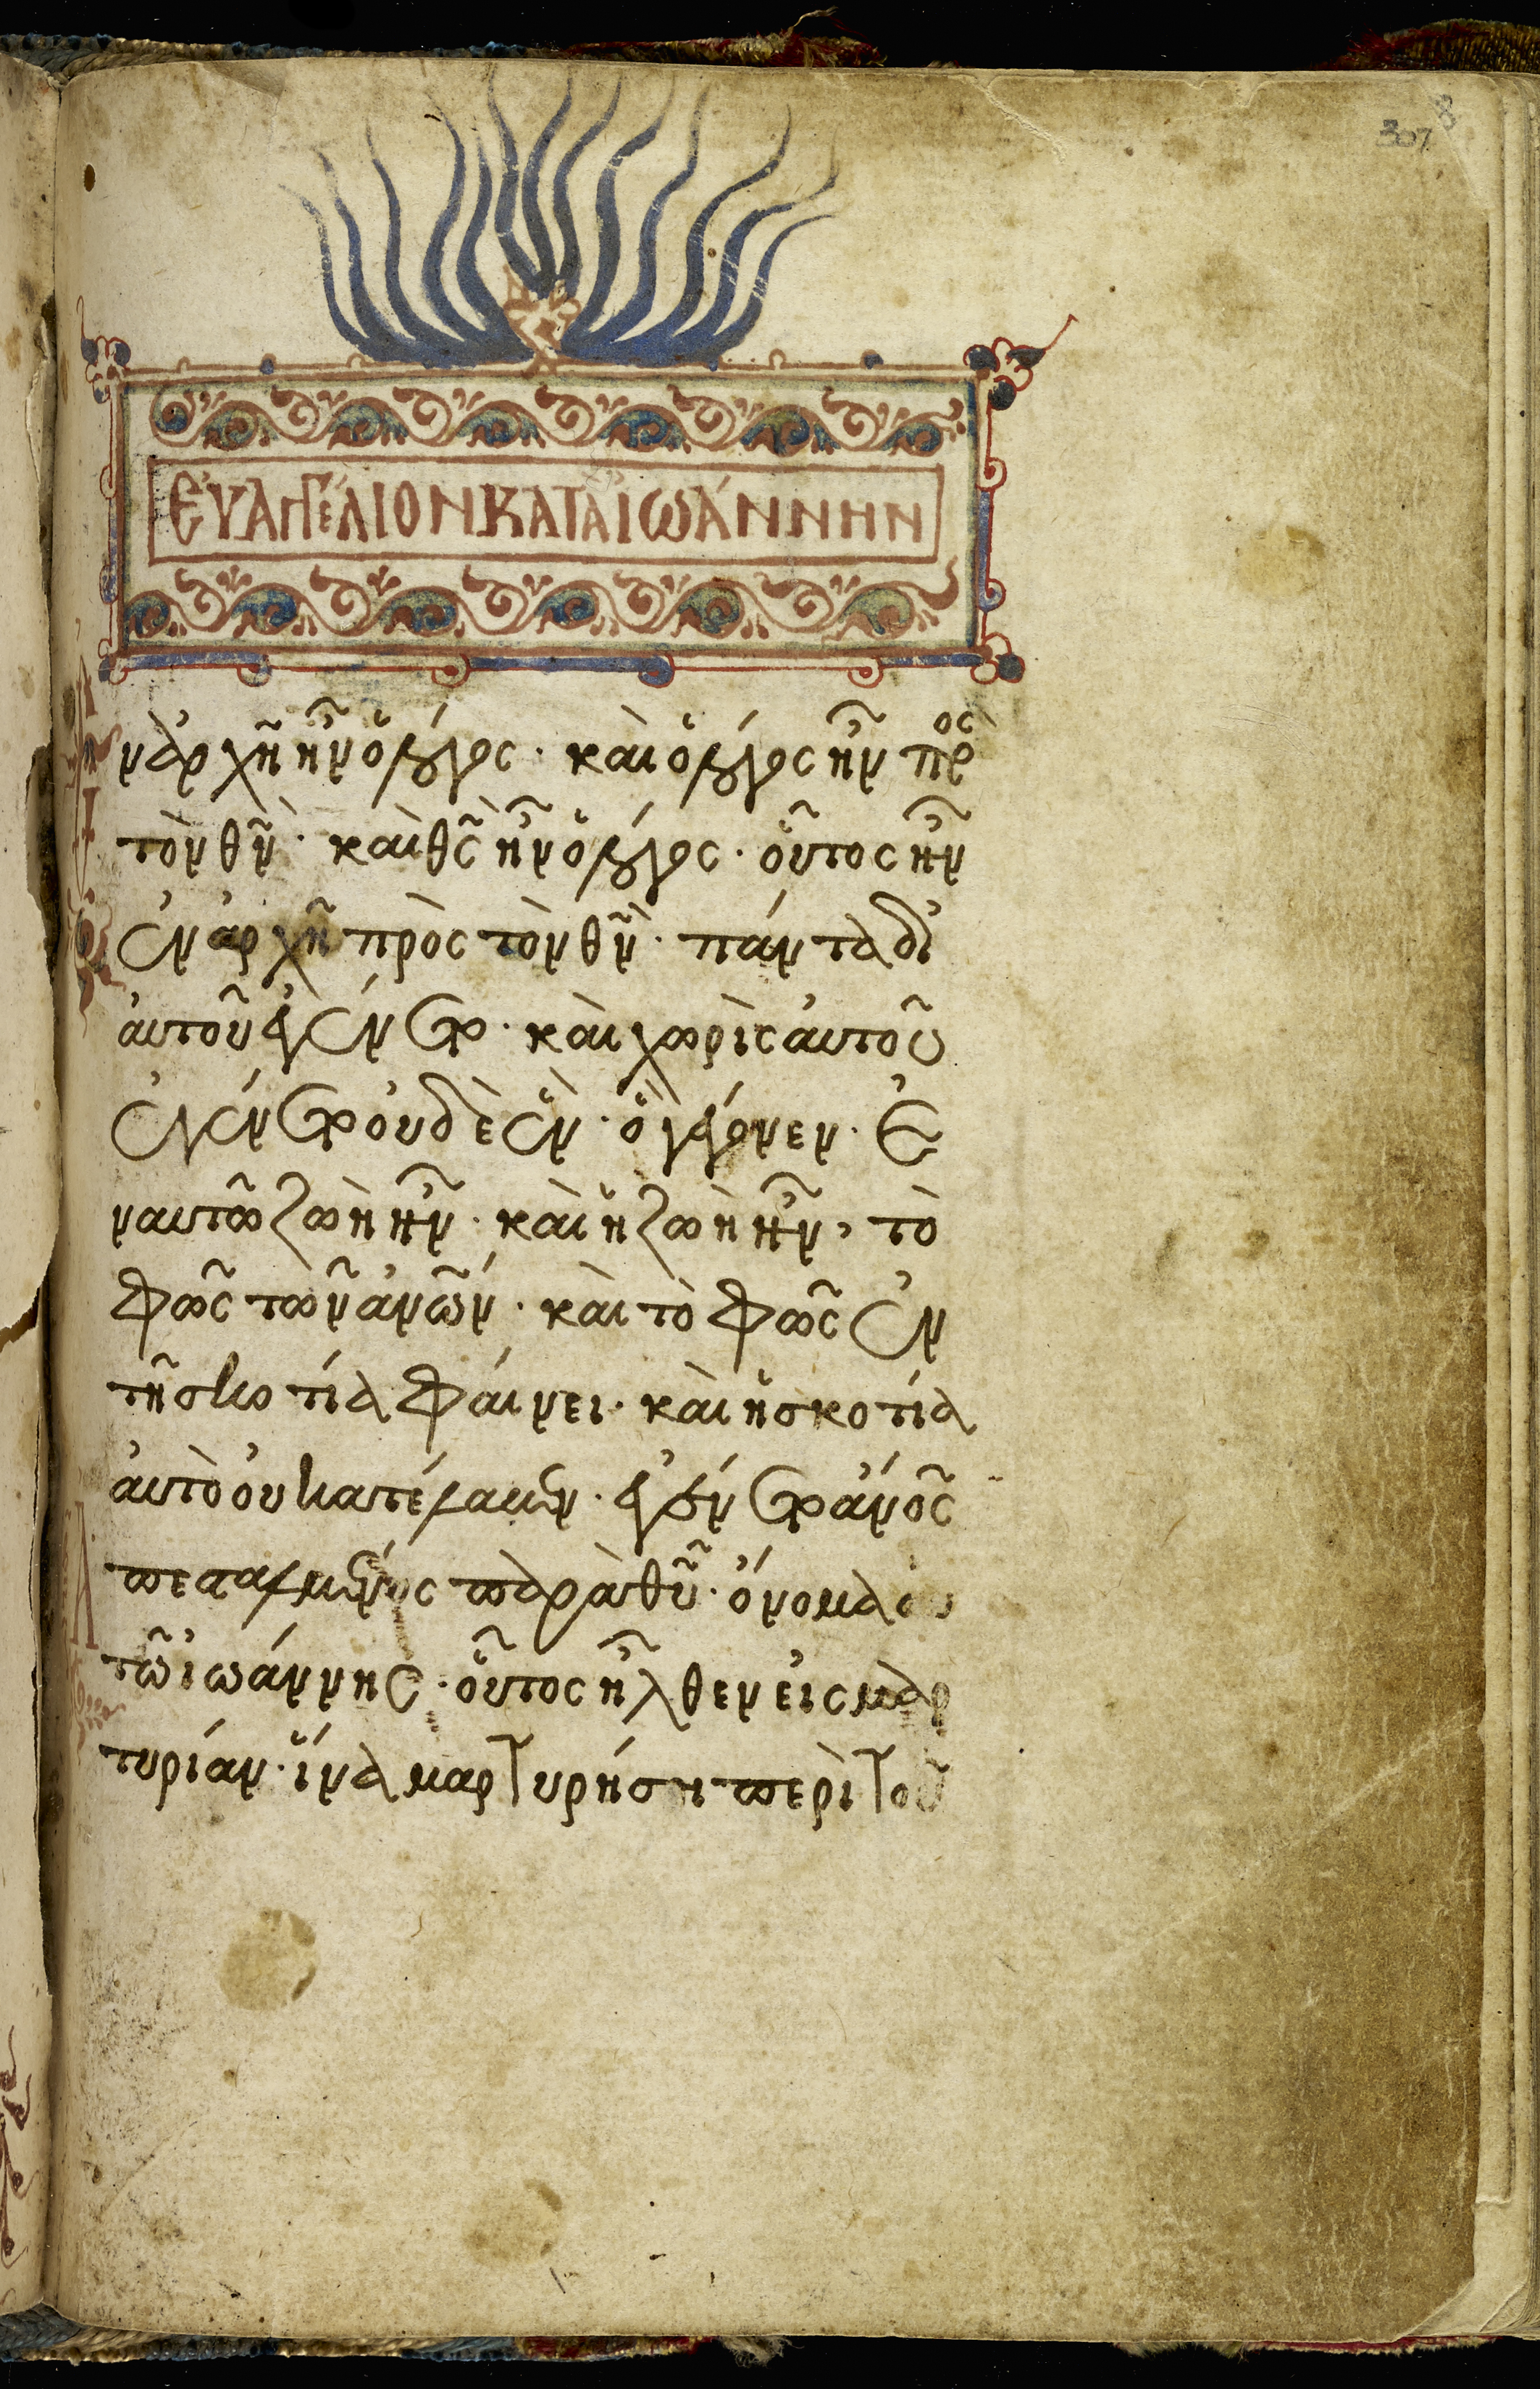 307 8
ΕΥ̓ΑΓΓΈΛΙΟΝ ΚΑΤᾺ ἸΩΆΝΝΗΝ
ν ἀρχῆ ἦν ὁ λόγος · καὶ ὁ λόγος ἦν πρὸς
τὸν θν̄ · καὶ θς̄ ἦν ὁ λόγος · οὗτος ἦν
ἐν ἀρχῆ πρὸς τὸν θν̄ · πάντα δι'
αὐτοῦ ἐγένετο · καὶ χωρὶς αὐτοῦ
ἐγένετο οὐδὲ ἓν · ὃ γέγονεν · Ἐ
ν αυτῶ ζωὴ ἦν · καὶ ἡ ζωὴ ἦν, τὸ
φῶς τῶν ἀν̄ων · καὶ τὸ φῶς ἐν
τῆ σκοτία φαίνει · καὶ ἡ σκοτία
ἀυτὸ οὐ κατέλαβεν · ἐγένετο ἄν̄ος
ἀπεσταλμένος παρὰ θῦ · ὄνομα αὐ
τῶ ἰωάννης · οὗτος ἦλθεν εἰς μαρ
τυρίαν · ἵνα μαρτυρήση περὶ τοῦ